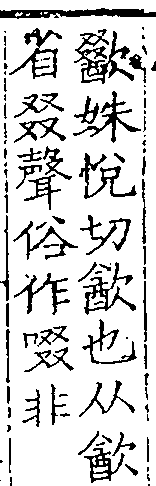 歠姝悅切㱃也从㱃
省叕聲俗作啜非